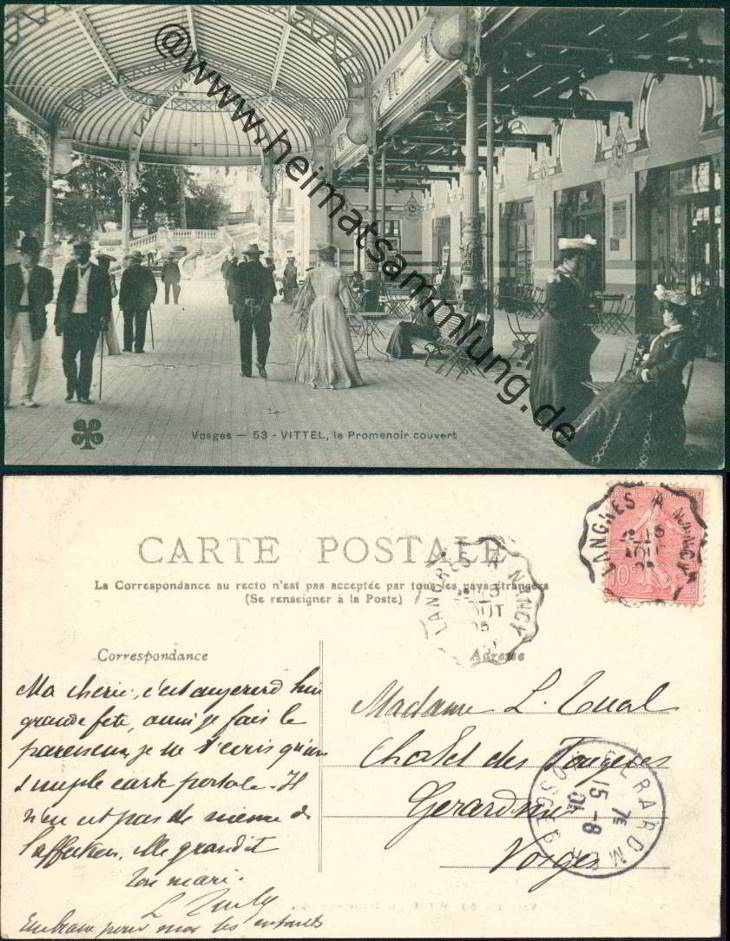 @www.heimatsammlung.de
Vosges — 53 - VITTEL, le Promenoir couvert
CARTE POSTALE
La Correspondance au recto n'est pas acceptée par tous les pays étrangers
(Se renseigner à la Poste)
LANGRES A NANCY
AOUT
10
LANGRES A NANCY
AOUT
05
Correspondance
Adresse
Ma chérie, c'est aujourd'hui
grande fête, aussi je fais le
paresseux, je ne t'écris qu'une
simple carte postale. Il
n'en est pas de même de
l'affection, elle grandit
Ton mari.
Embrasse pour moi les enfants
Madame L.
Chalet des
Gerardmer
Vosges
GERARDMER
VOSGES
7E
15 - 8
05